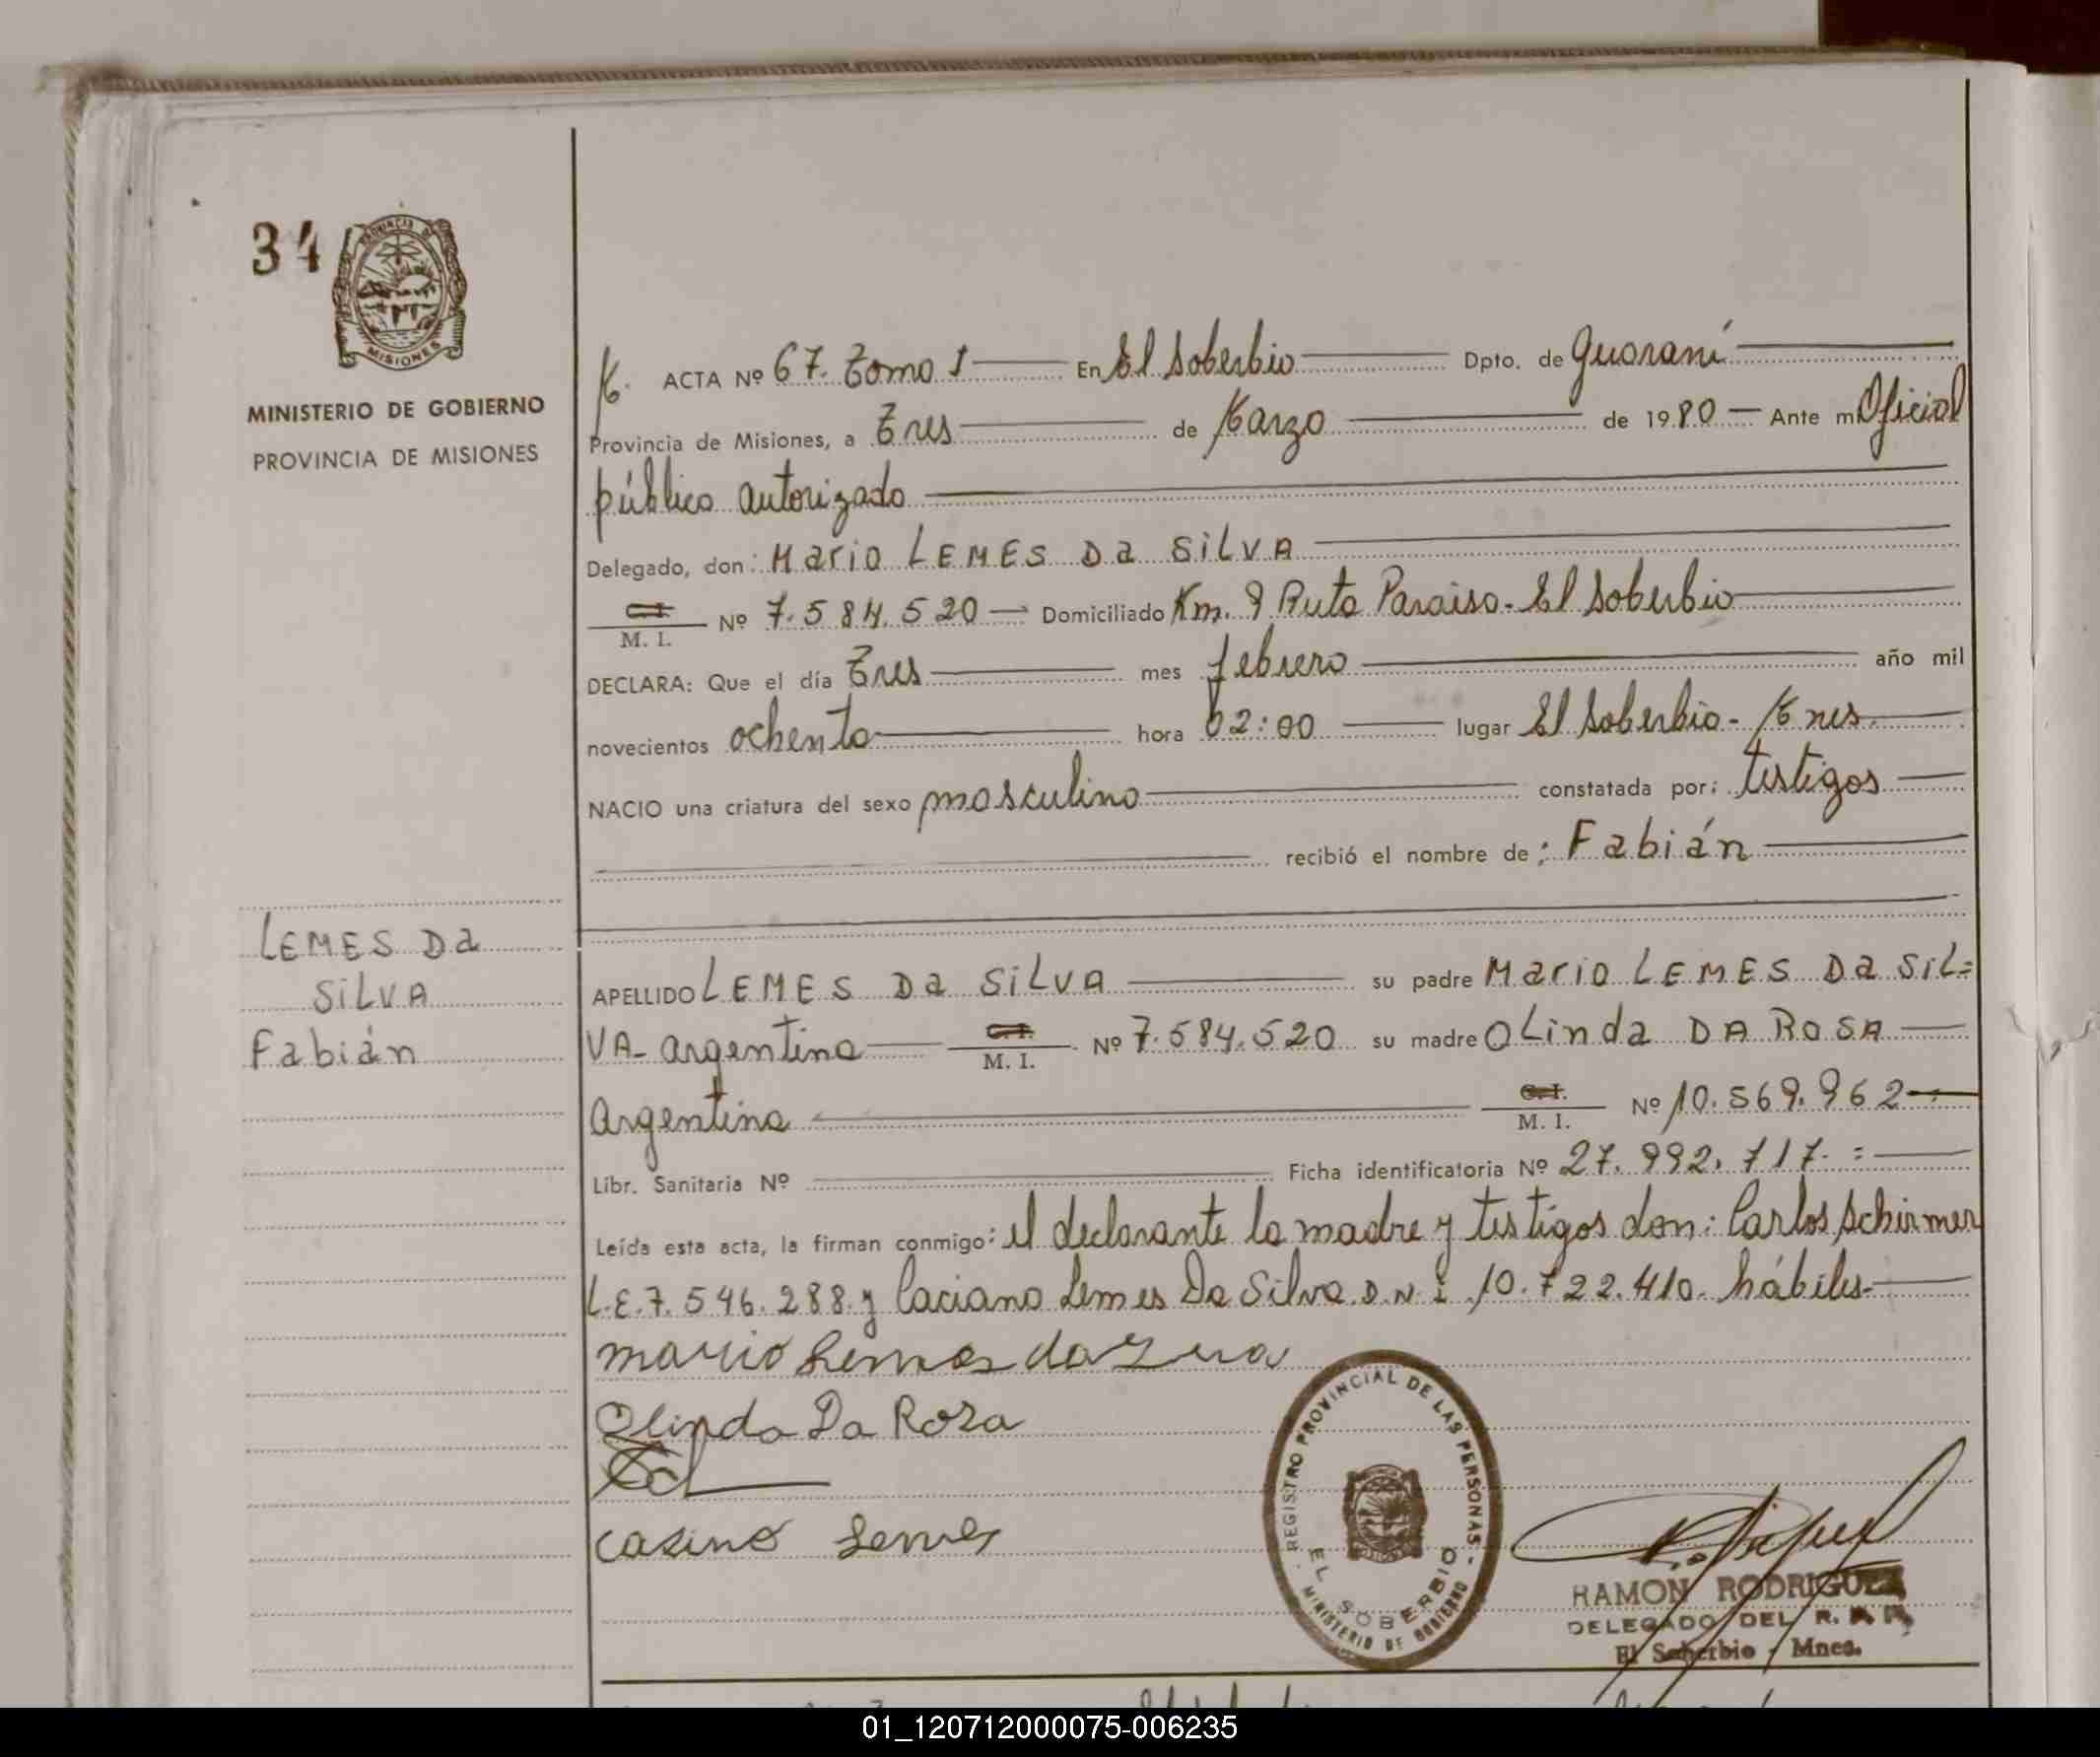 34
PROVINCIA DE
MISIONES
MINISTERIO DE GOBIERNO
PROVINCIA DE MISIONES
ACTA Nº 67. Tomo I En El Soberbio Dpto. de Guaraní
Provincia de Misiones, a Tres de Marzo de 1980 Ante mi Oficial
público autorizado
Delegado, don: Mario LEMES Da SiLVA
C.I.
M. I. Nº 7.584.520 Domiciliado Km. 9 Ruta Paraiso - El Soberbio
DECLARA: Que el día Tres mes febrero año mil
novecientos ochenta hora 02:00 lugar El Soberbio - Mnes.
NACIO una criatura del sexo masculino constatada por: testigos
recibió el nombre de: Fabián
LEMES Da
SiLVA
Fabián
APELLIDO LEMES Da SiLVA su padre Mario LEMES Da SiL=
VA - argentino C.I. M. I. Nº 7.584.520 su madre OLinda DA ROSA
argentina C.I. M. I. Nº 10.569.962
Libr. Sanitaria Nº Ficha identificatoria Nº 27.992.717. =
Leída esta acta, la firman conmigo: el declarante la madre y testigos don: Carlos Schirmer
L.E. 7.546.288 y Caciano Lemes Da Silva D.N.I 10.722.410. hábiles-
mario Lemes da
Olinda Da Rosa
Lemes
REGISTRO PROVINCIAL DE LAS PERSONAS -
MINISTERIO DE GOBIERNO
EL SOBERBIO
RAMON RODRIGUEZ
DELEGADO DEL R.
El Soberbio - Mnes.
01_120712000075-006235